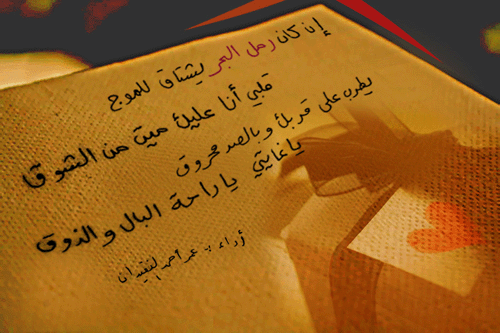 إن كان رمل البحر يشتاق للموج
قلبي أنا عليك ميت من الشوق
يطرب على قربك وبالصد محروق
يا غايتي يا راحة البال والذوق
أداء : عمر أحمد